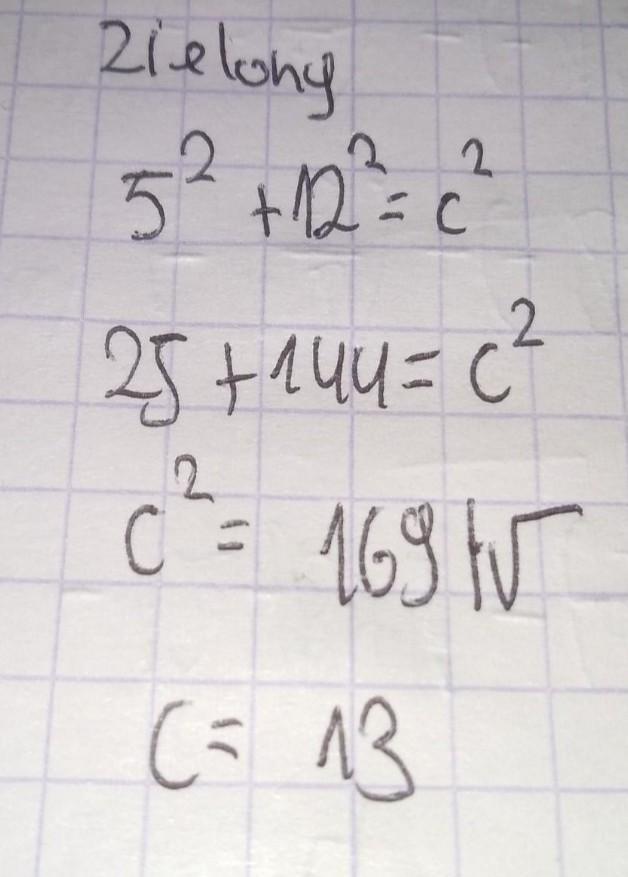 Zielony
5² + 12² = c²
25 + 144 = c²
c² = 169 |√
c = 13